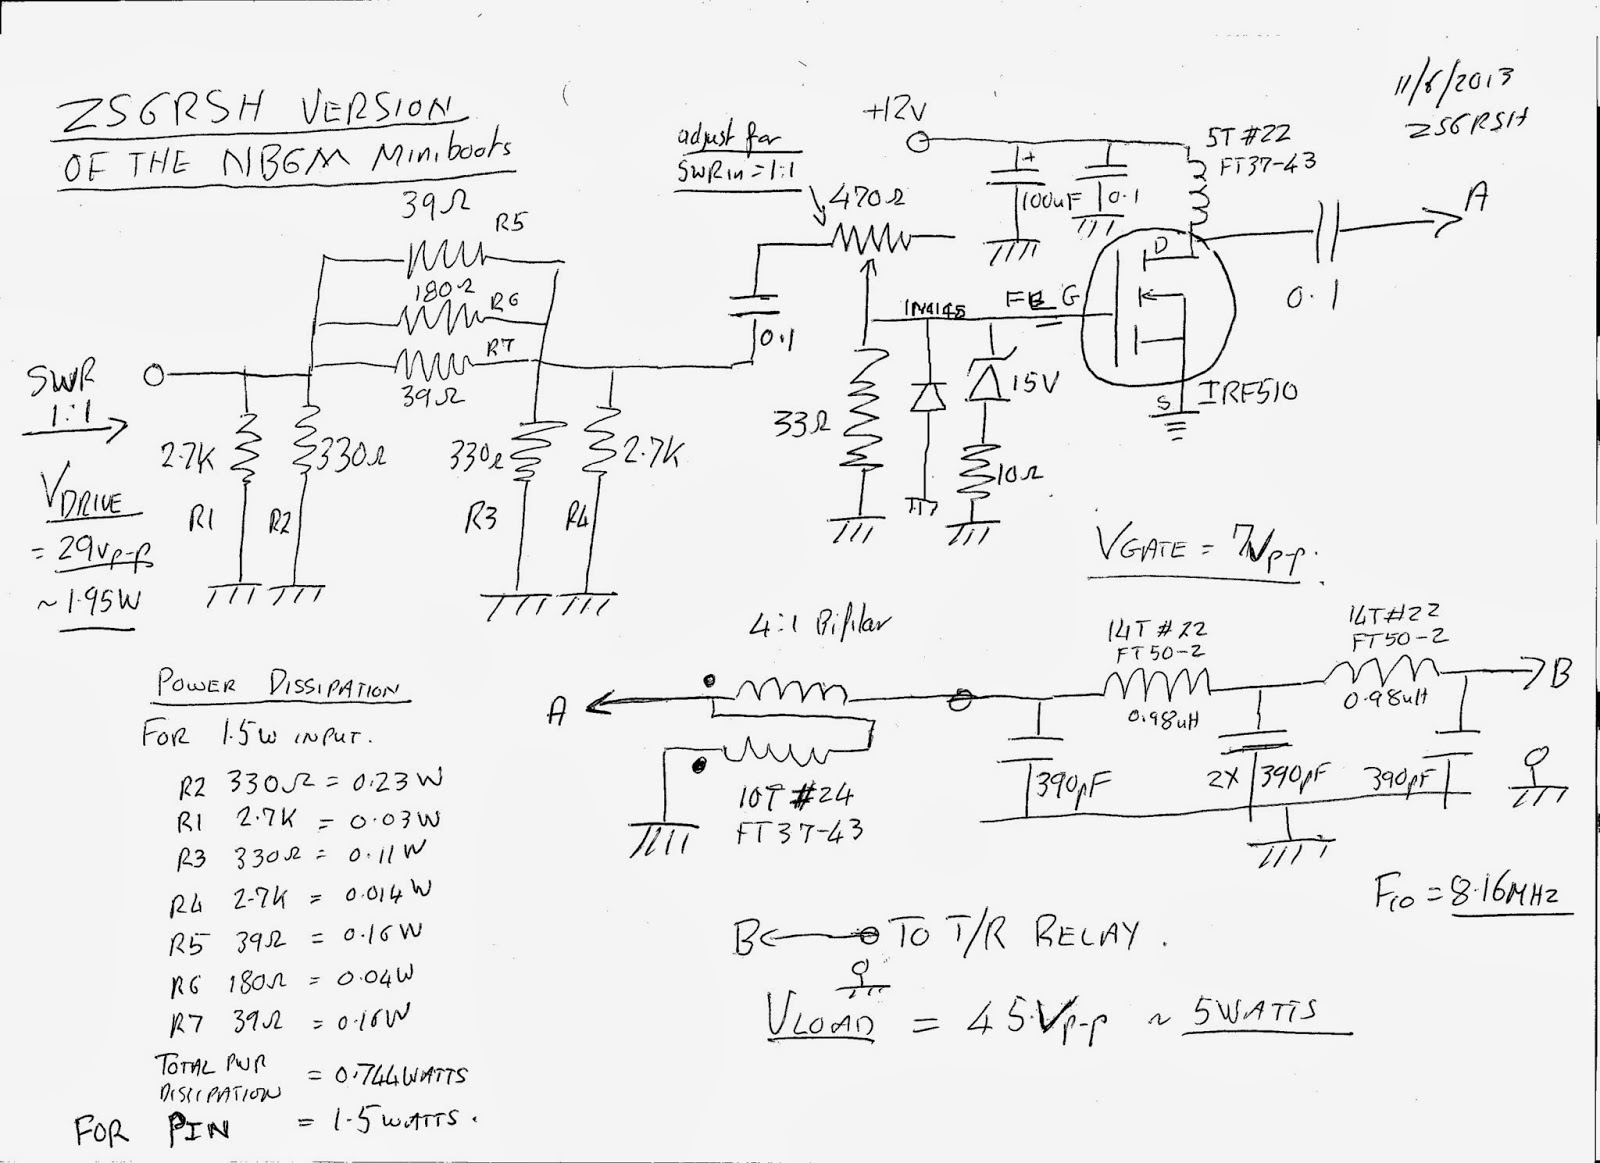 ZS6RSH VERSION
OF THE NB6M Miniboots
11/6/2013
ZS6RSH
+12V
5T #22
FT37-43
adjust for
SWR in = 1:1
470Ω
100uF
0.1
A
39Ω
R5
180Ω
R6
R7
39Ω
0.1
1N4148
FB
G
D
S
IRF510
0.1
SWR
1:1
2.7K
330Ω
330Ω
2.7K
33Ω
15V
10Ω
R1
R2
R3
R4
VDRIVE
= 29Vp-p
~ 1.95W
VGATE = 7Vp-p.
4:1 Bifilar
14T #22
FT50-2
14T #22
FT50-2
A
0.98uH
0.98uH
B
10T #24
FT37-43
390pF
2X 390pF
390pF
Fco = 8.16MHz
POWER DISSIPATION
FOR 1.5W INPUT.
R2 330Ω = 0.23W
R1 2.7K = 0.03W
R3 330Ω = 0.11W
R4 2.7K = 0.014W
R5 39Ω = 0.16W
R6 180Ω = 0.04W
R7 39Ω = 0.16W
TOTAL PWR
DISSIPATION = 0.744WATTS
FOR PIN = 1.5WATTS.
B TO T/R RELAY.
VLOAD = 45Vp-p ~ 5WATTS